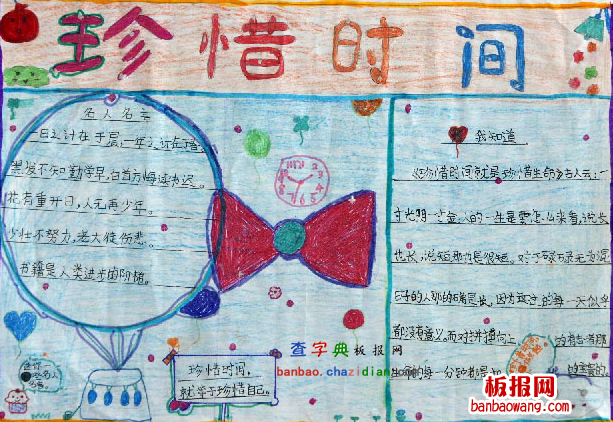 珍惜时间
名人名言
一日之计在于晨,一年之计在于春
黑发不知勤学早,白首方悔读书迟。
花有重开日,人无再少年。
少壮不努力,老大徒伤悲。
书籍是人类进步的阶梯。
珍惜时间,
就等于珍惜自己。
我知道
珍惜时间就是珍惜生命 古人云:一
寸光阴一寸金,人的一生
也长,说短那也是很短。对于
日子的人那的确是长,因为
都没有意义。而对
的每一分钟都是
查字典板报网
banbao.chazidian.com
板报网
banbaowang.com